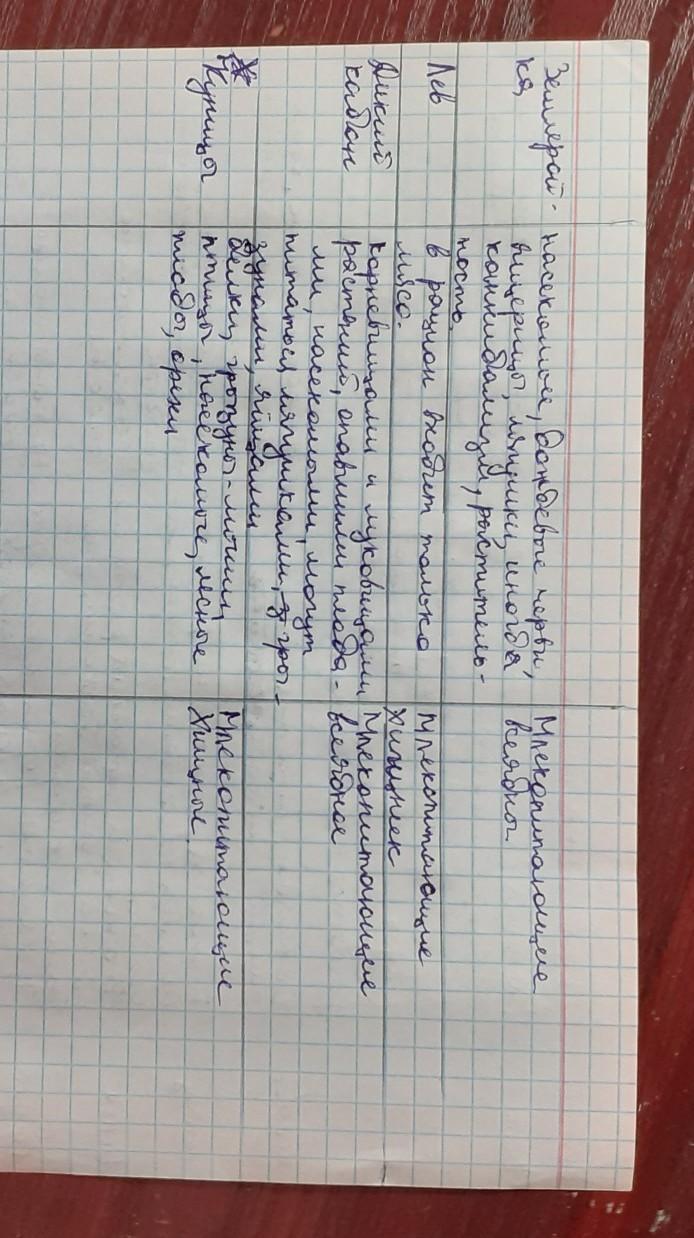 Землерой-
ка
насекомые, дождевые черви,
ящерицы, лягушки, иногда
каннибализм, раститель-
ность.
Млекопитающие
всеядны
Лев
в рацион входит только
мясо.
Млекопитающие
Хищник
Дикий
кабан
корневищами и луковицами
растений, опавшими плода-
ми, насекомыми, могут
питаться лягушками, гры-
зунами, яйцами
Млекопитающие
всеядное
Куницы
белки, грызуны-мыши,
птицы, насекомые, лесные
плоды, орехи
Млекопитающие
Хищные